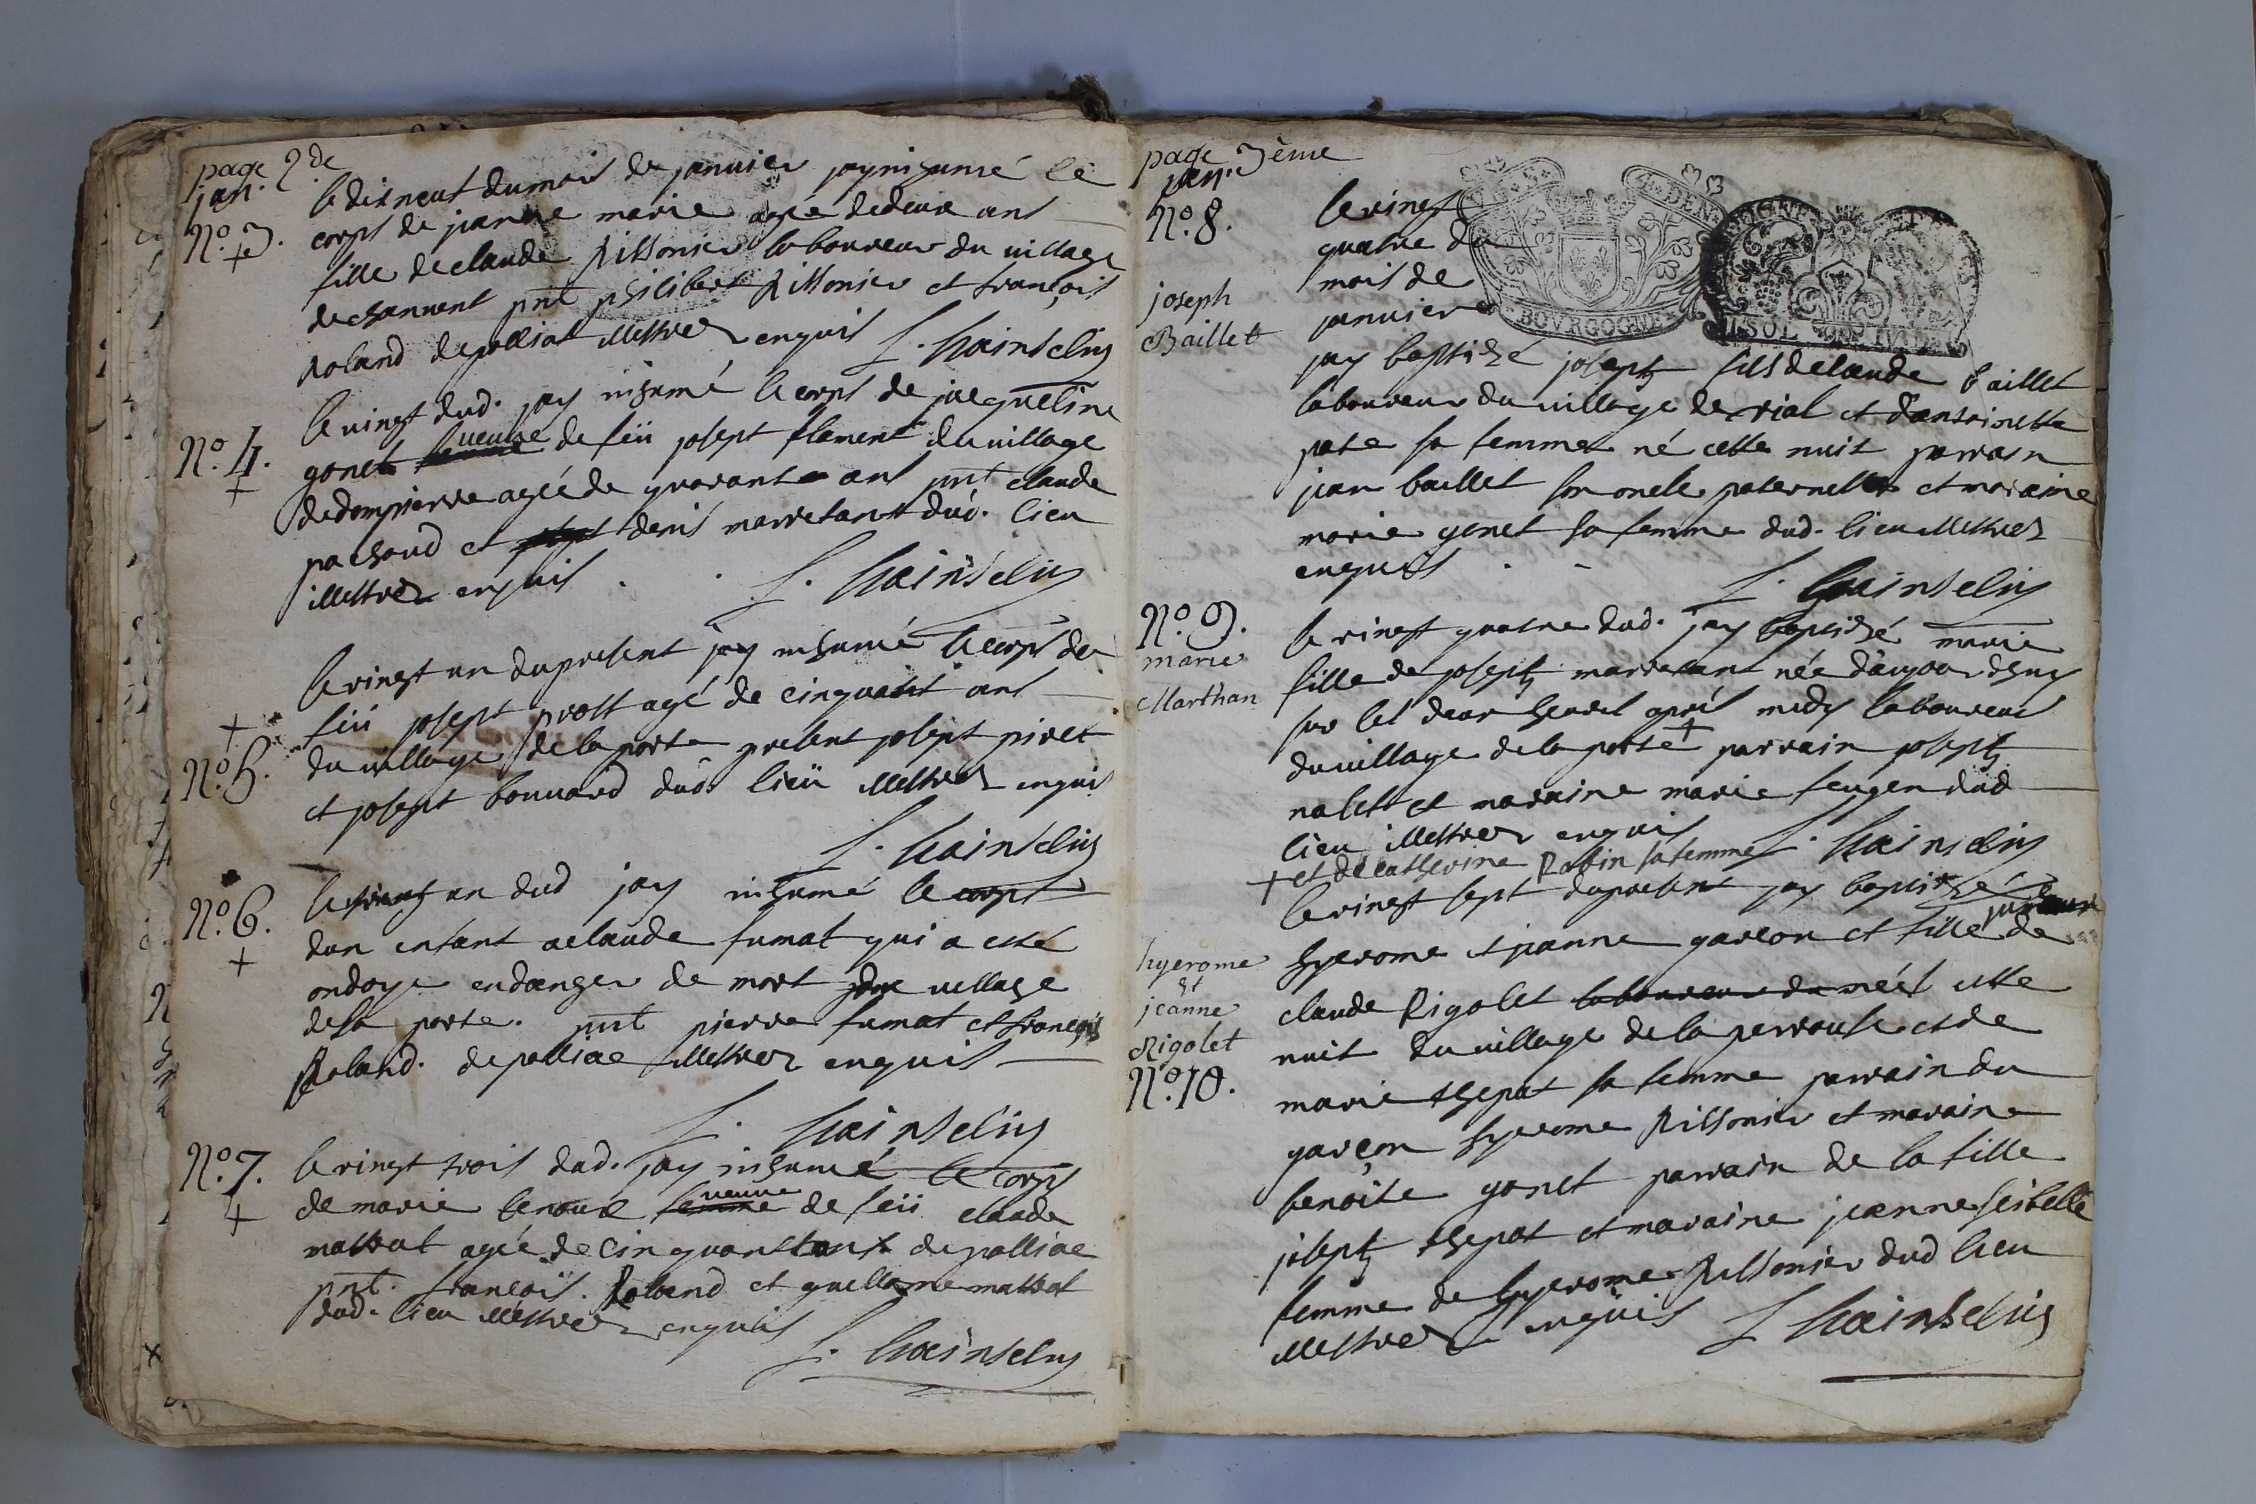 page 2.de
jan.
No. 3.
+
le dix neuf du mois de januier jay inhumé le
corps de jeanne marie agée de deux ans
fille de claude Rissonier laboureur du uillage
de channent pnt philibert Rissonier et françois
Roland de polliat illettrez enquis
f. hainselin
No. 4.
+
le vingt dud. jay inhumé le corps de jacqueline
gonet femme ueuue de feü josept flament du uillage
de dompierre agée de quarante ans pnt claude
pachoud et denis marretant dud. lieu
illettrez enquis . . f. hainselin
le vingt un du present jay inhumé le corps de
+
No. 5.
feü josept prost agé de cinquante ans
du uillage de la porte present josept piret
et josept bouuard dud. lieü illettrez enquis
f. hainselin
No. 6.
+
le vingt un dud jay inhumé le corps
dun enfant a claude fumat qui a esté
ondoye en danger de mort uillage
de la porte. pnt pierre fumat et françois
Roland. de polliac illettrez enquis
f. hainselin
No. 7.
+
le vingt trois dud. jay inhumé le corps
de marie femme ueuue de feü claude
mattrat agée de cinquante ans de polliac
pnt. françois. Roland et guillaume mattrat
dud. lieu illéttrez enquis
f. hainselin
page 3ème
jan.
No. 8.
joseph
Baillet
BOVRGOGNE
le vingt
quatre du
mois de
januier
jay baptizé joseph fils de claude baillet
laboureur du uillage de rial et dantoinette
pate sa femme né cette nuit parrain
jean baillet son oncle paternelle et maraine
marie gonet sa femme dud. lieu illettrez
enquis . -
f. hainselin
No. 9.
marie
Marthan
le vingt quatre dud. jay baptizé marie
fille de joseph marretant née daujourdhuy
sur les deux heures aprés midy laboureur
du uillage de la porte + parrain joseph
nalet et maraine marie feugen dud
lieu illettrez enquis f. hainselin
+ et de catherine Robin sa femme
hyerome
et
jeanne
Rigolet
No. 10.
le vingt sept du present jay baptizé jumeaux
hyerome et jeanne garçon et fille de
claude Rigolet laboureur du néés cette
nuit du uillage de la perrouse et de
marie thepat sa femme parrain du
garçon hyerome Rissonier et maraine
benoite gonet parrain de la fille
joseph thepat et maraine jeanne
femme de hyerome Rissonier dud lieu
illettrez enquis f hainselin